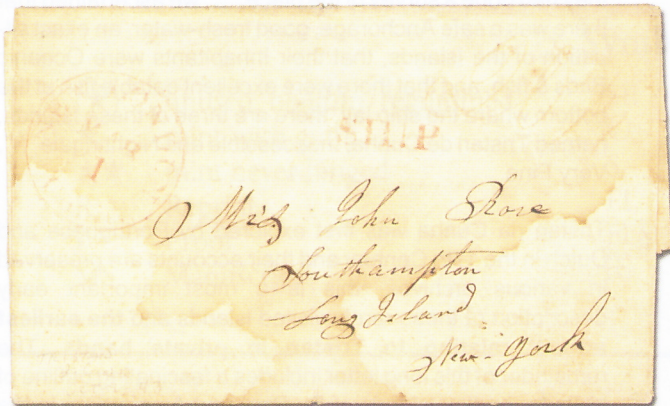 SHIP
Mrs. John Rose
Southampton
Long Island
New-York